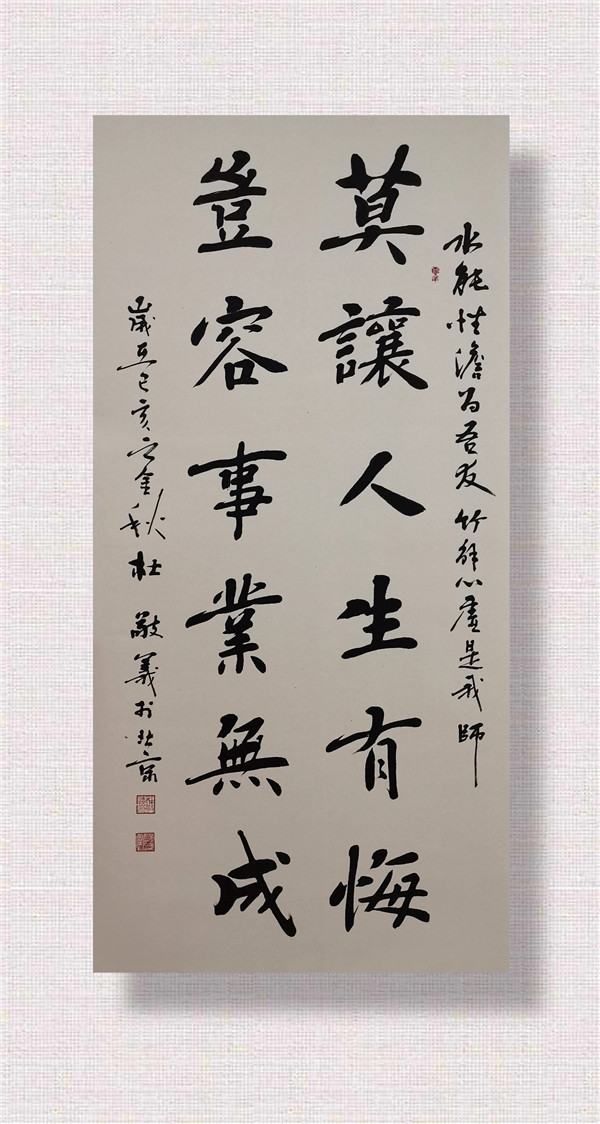 水能性澹為吾友竹解心虛是我師
莫讓人生有悔
豈容事業無成
歲在己亥之金秋杜敬義於北京